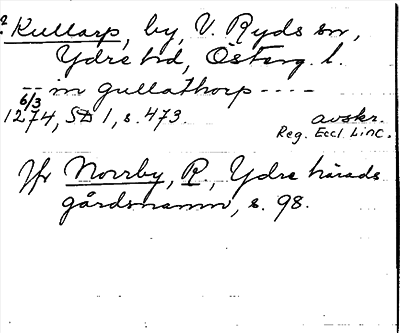 ? Kullarp, by, V. Ryds sn,
Ydre hd, Österg. l.
-- in gullathorp ----
6/3
1274, SD 1, s. 473. avskr.
Reg. Eccl. Linc.
Jfr Norrby, R., Ydre härads
gårdsnamn, s. 98.